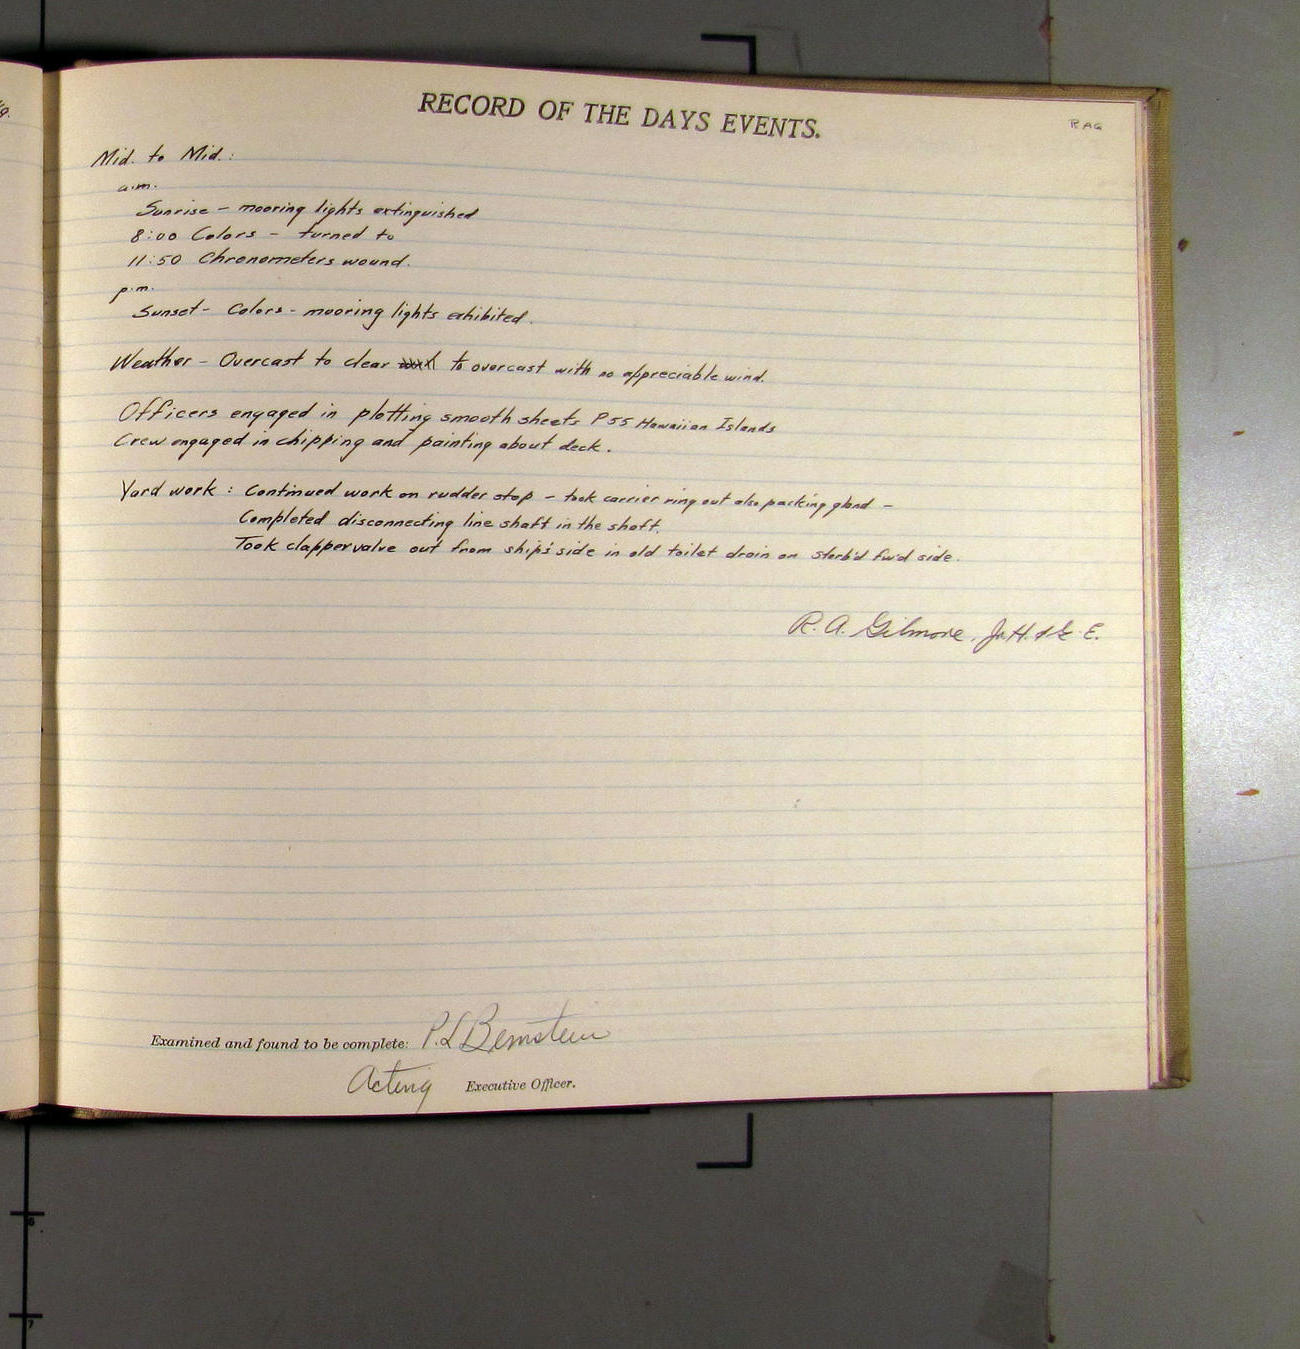 RECORD OF THE DAYS EVENTS.
RAG
Mid. to Mid.:
a.m.
Sunrise - mooring lights extinguished
8:00 Colors - turned to
11:50 Chronometers wound.
p.m.
Sunset - Colors - mooring lights exhibited.
Weather - Overcast to clear to overcast with no appreciable wind.
Officers engaged in plotting smooth sheets P55 Hawaiian Islands
Crew engaged in chipping and painting about deck.
Yard work: Continued work on rudder stop - took carrier ring out also packing gland -
Completed disconnecting line shaft in the shaft.
Took clapper valve out from ship's side in old toilet drain on starb'd fw'd side.
R. A. Gilmore, Jr. H. & G. E.
Examined and found to be complete: P. L. Bernstein
Acting Executive Officer.
6
7